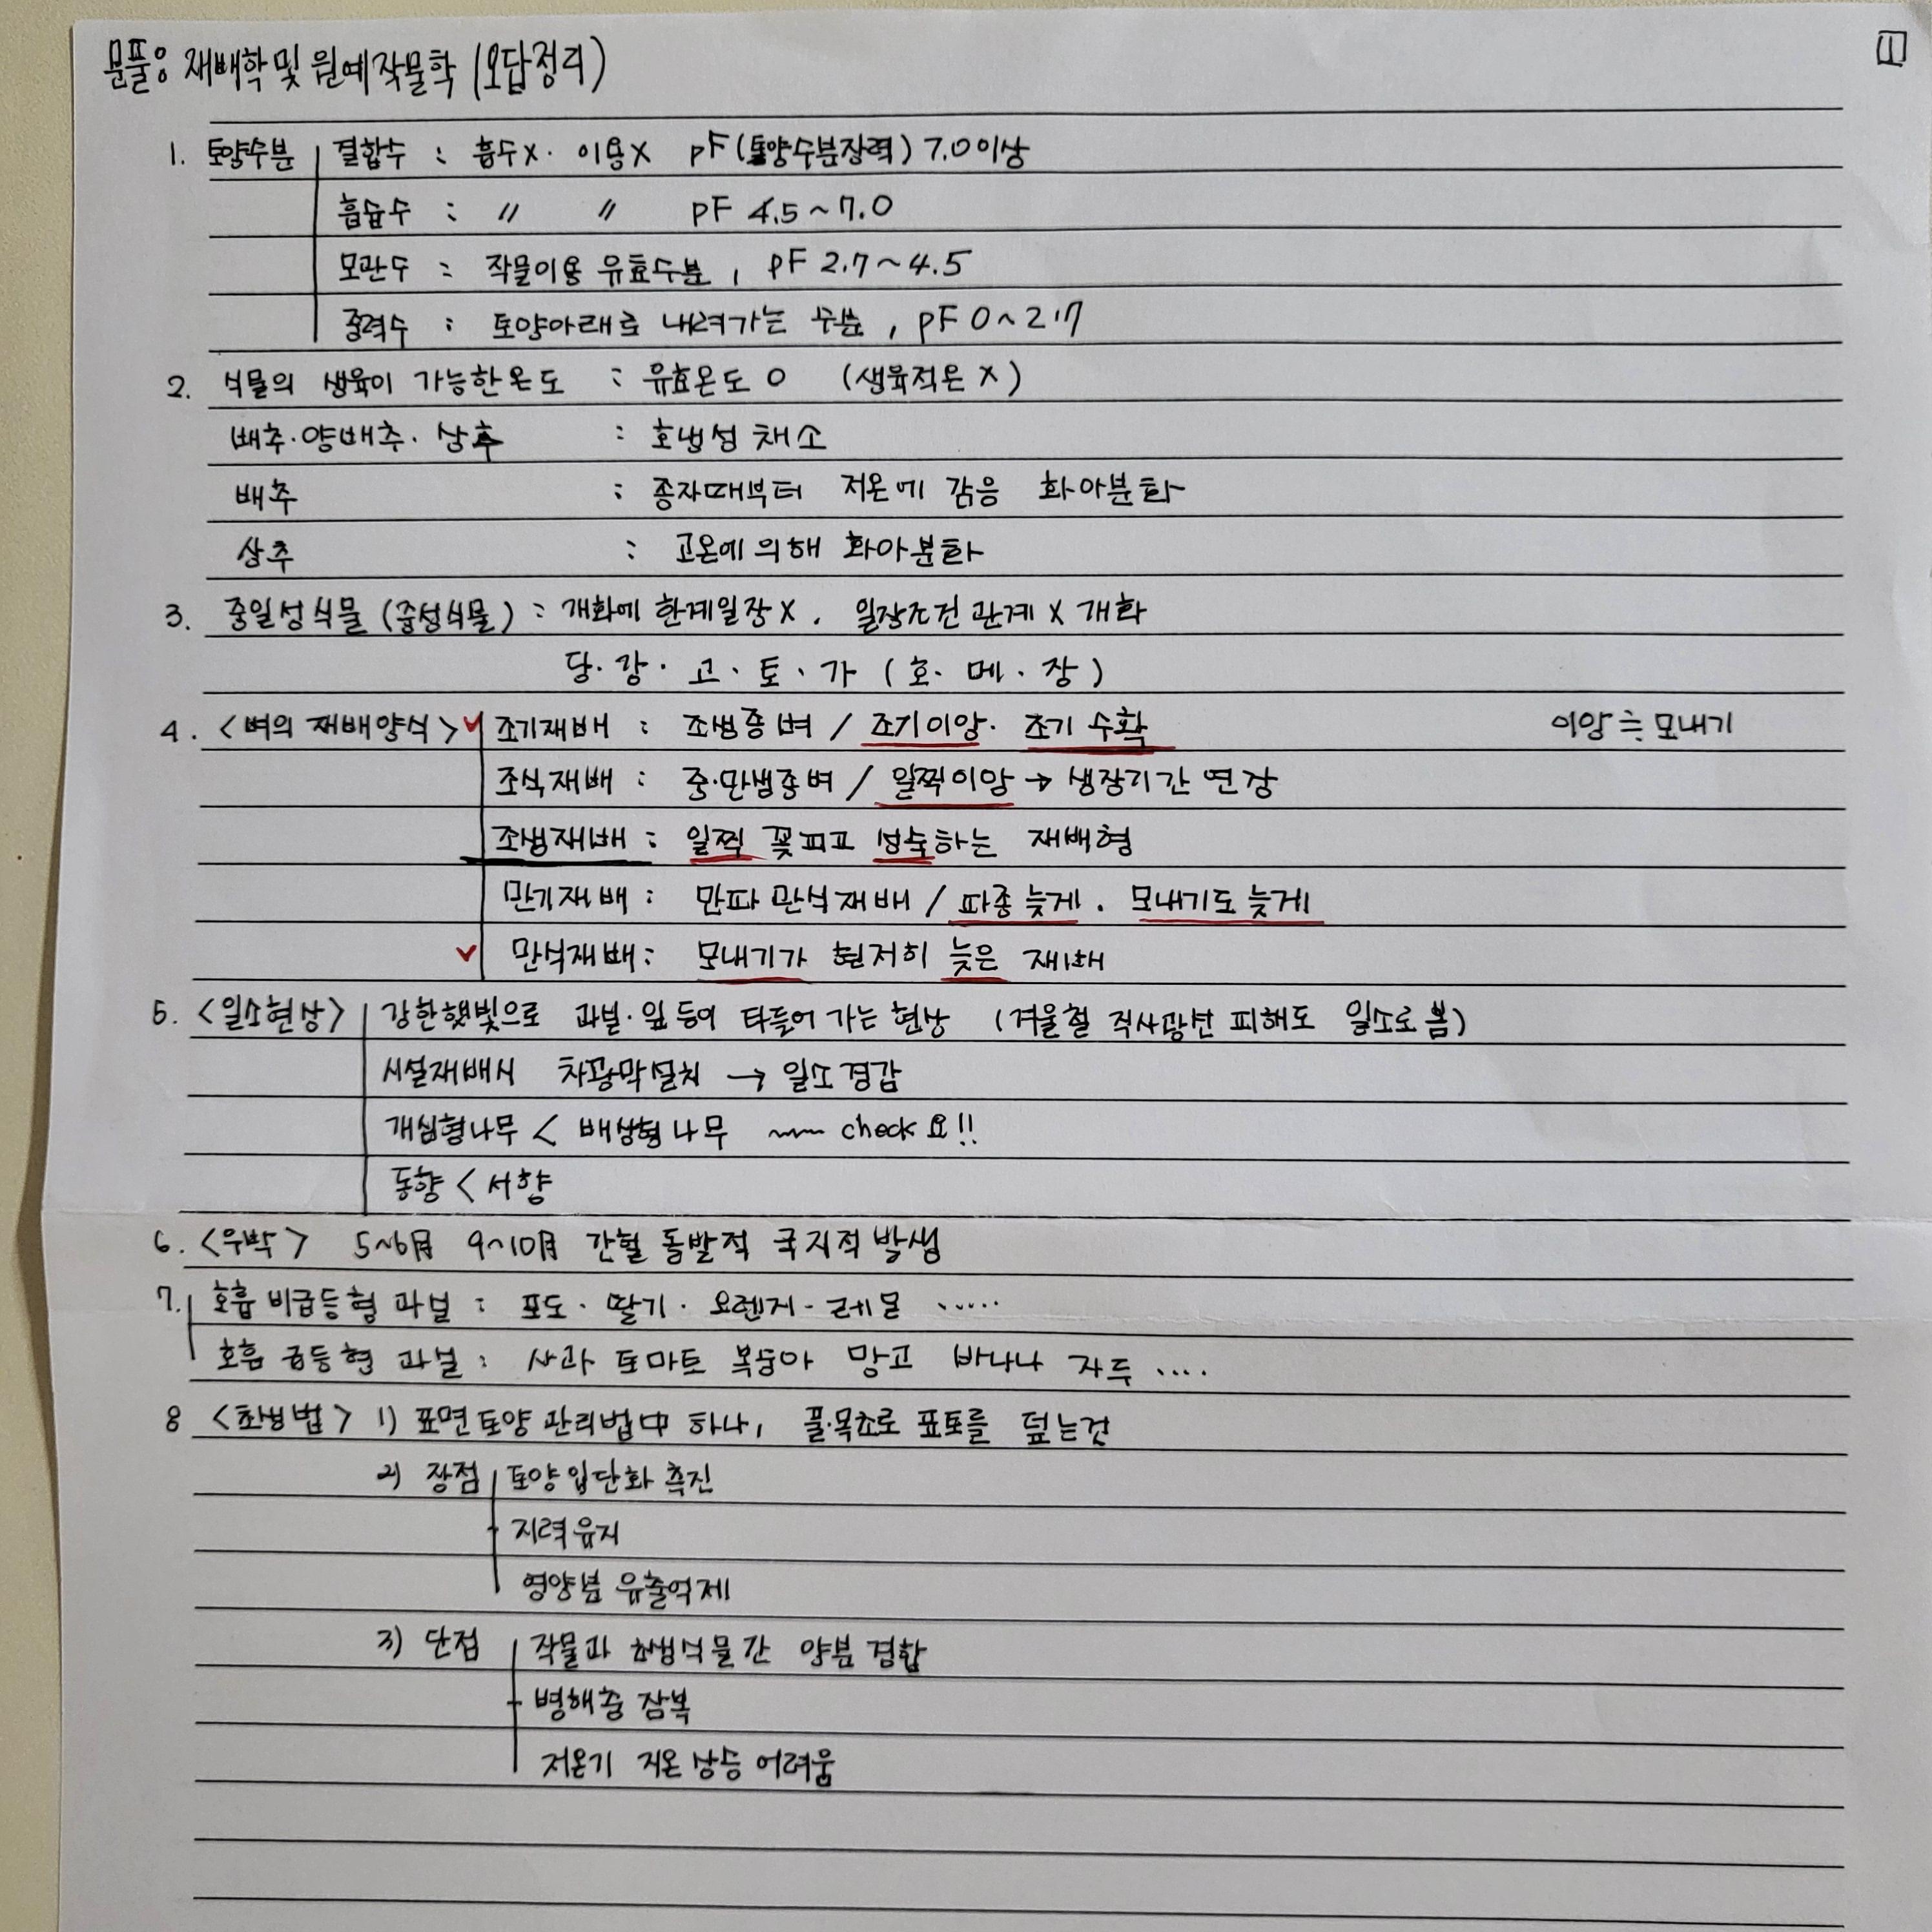 문풀용 재배학 및 원예작물학 (오답정리)
1
1. 토양수분 결합수 : 흡수X. 이용X pF(토양수분장력) 7.0이상
흡습수 : 〃 〃 pF 4.5~7.0
모관수 : 작물이용 유효수분, pF 2.7~4.5
중력수 : 토양아래로 내려가는 수분, pF 0~2.7
2. 식물의 생육이 가능한온도 : 유효온도 O (생육적온 X)
배추·양배추·상추 : 호냉성 채소
배추 : 종자때부터 저온에 감응 화아분화
상추 : 고온에 의해 화아분화
3. 중일성식물 (중성식물) : 개화에 한계일장X. 일장조건 관계 X 개화
당·강·고·토·가 (호·메·장)
4. <벼의 재배양식> ✓ 조기재배 : 조생종벼 / 조기이앙· 조기 수확 이앙 ≒ 모내기
조식재배 : 중·만생종벼 / 일찍이앙 → 생장기간 연장
조생재배 : 일찍 꽃피고 성숙하는 재배형
만기재배 : 만파만식재배 / 파종 늦게. 모내기도 늦게
✓ 만식재배 : 모내기가 현저히 늦은 재배
5. <일소현상> 강한햇빛으로 과실·잎 등이 타들어 가는 현상 (겨울철 직사광선 피해도 일소로 봄)
시설재배시 차광막설치 → 일소 경감
개심형나무 < 배상형나무 ~~~ check 요!!
동향 < 서향
6. <우박> 5~6月 9~10月 간헐 돌발적 국지적 발생
7. 호흡 비급등형 과실 : 포도·딸기·오렌지·레몬 ·····
호흡 급등형 과실 : 사과 토마토 복숭아 망고 바나나 자두 ····
8 <초생법> 1) 표면토양 관리법中 하나, 풀·목초로 표토를 덮는것
2) 장점 토양입단화 촉진
지력유지
영양분 유출억제
3) 단점 작물과 초생식물간 양분 경합
병해충 잠복
저온기 지온상승 어려움